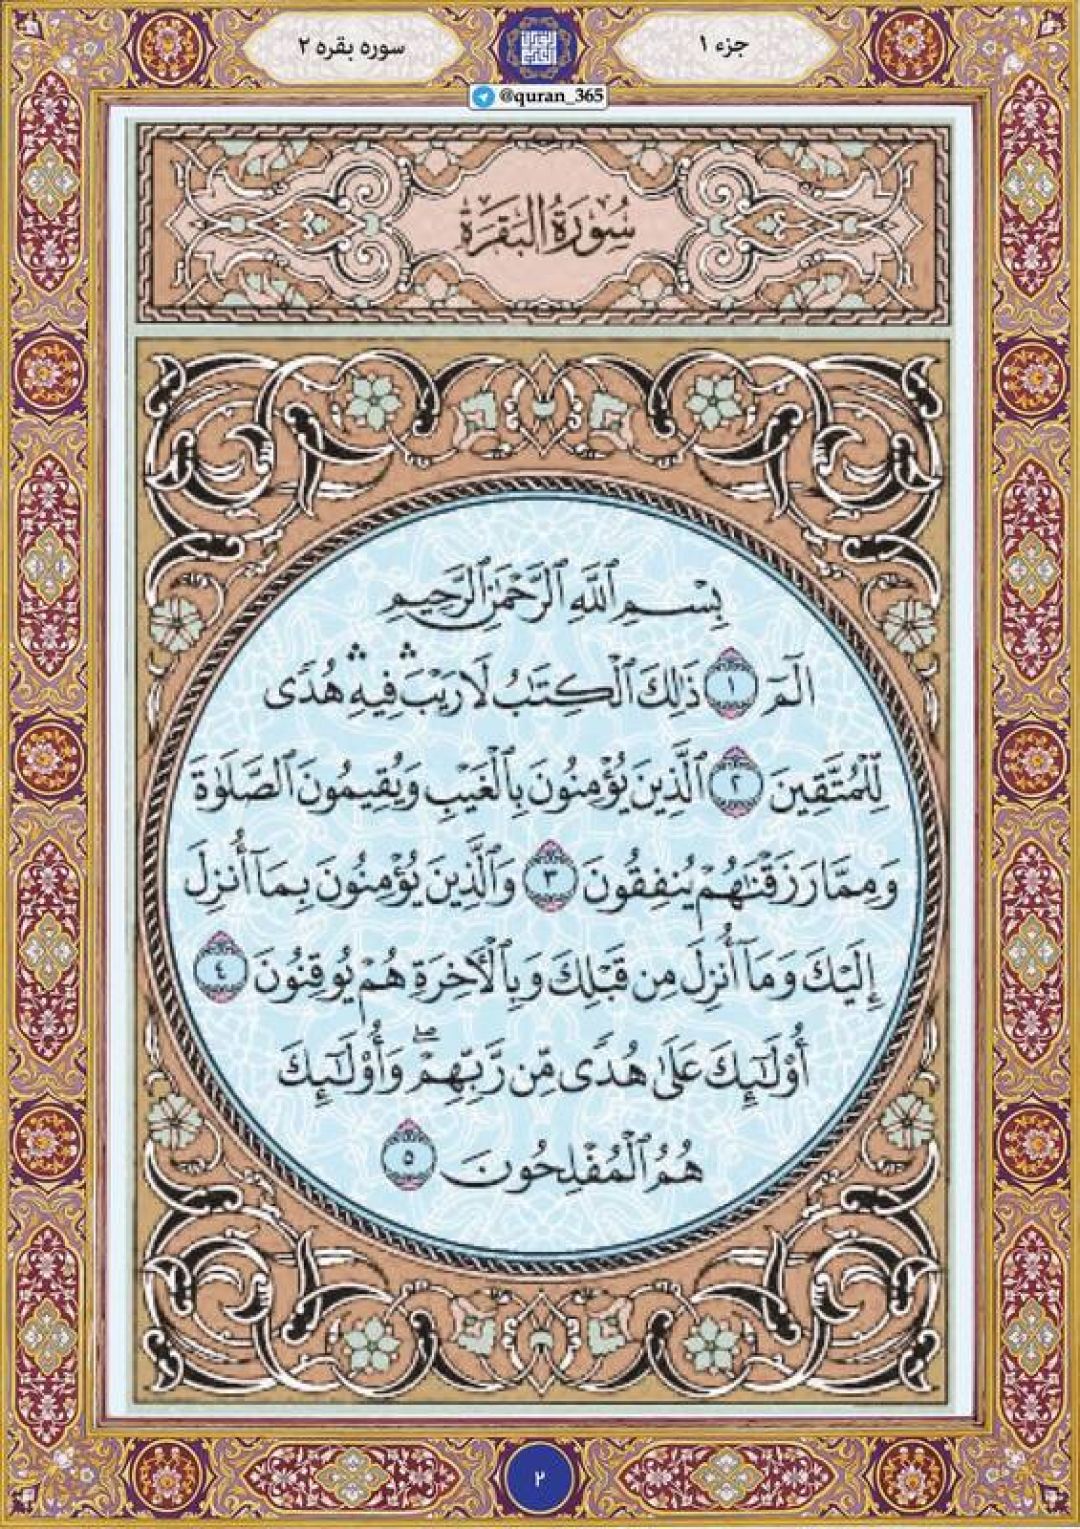 جزء ۱
سوره بقره ۲
@quran_365
سُورَةُ الْبَقَرَةِ
بِسْمِ ٱللَّهِ ٱلرَّحْمَٰنِ ٱلرَّحِيمِ
الٓمٓ ١ ذَٰلِكَ ٱلْكِتَٰبُ لَا رَيْبَۛ فِيهِۛ هُدًى
لِّلْمُتَّقِينَ ٢ ٱلَّذِينَ يُؤْمِنُونَ بِٱلْغَيْبِ وَيُقِيمُونَ ٱلصَّلَوٰةَ
وَمِمَّا رَزَقْنَٰهُمْ يُنفِقُونَ ٣ وَٱلَّذِينَ يُؤْمِنُونَ بِمَآ أُنزِلَ
إِلَيْكَ وَمَآ أُنزِلَ مِن قَبْلِكَ وَبِٱلْأٓخِرَةِ هُمْ يُوقِنُونَ ٤
أُو۟لَٰٓئِكَ عَلَىٰ هُدًى مِّن رَّبِّهِمْۖ وَأُو۟لَٰٓئِكَ
هُمُ ٱلْمُفْلِحُونَ ٥
۲